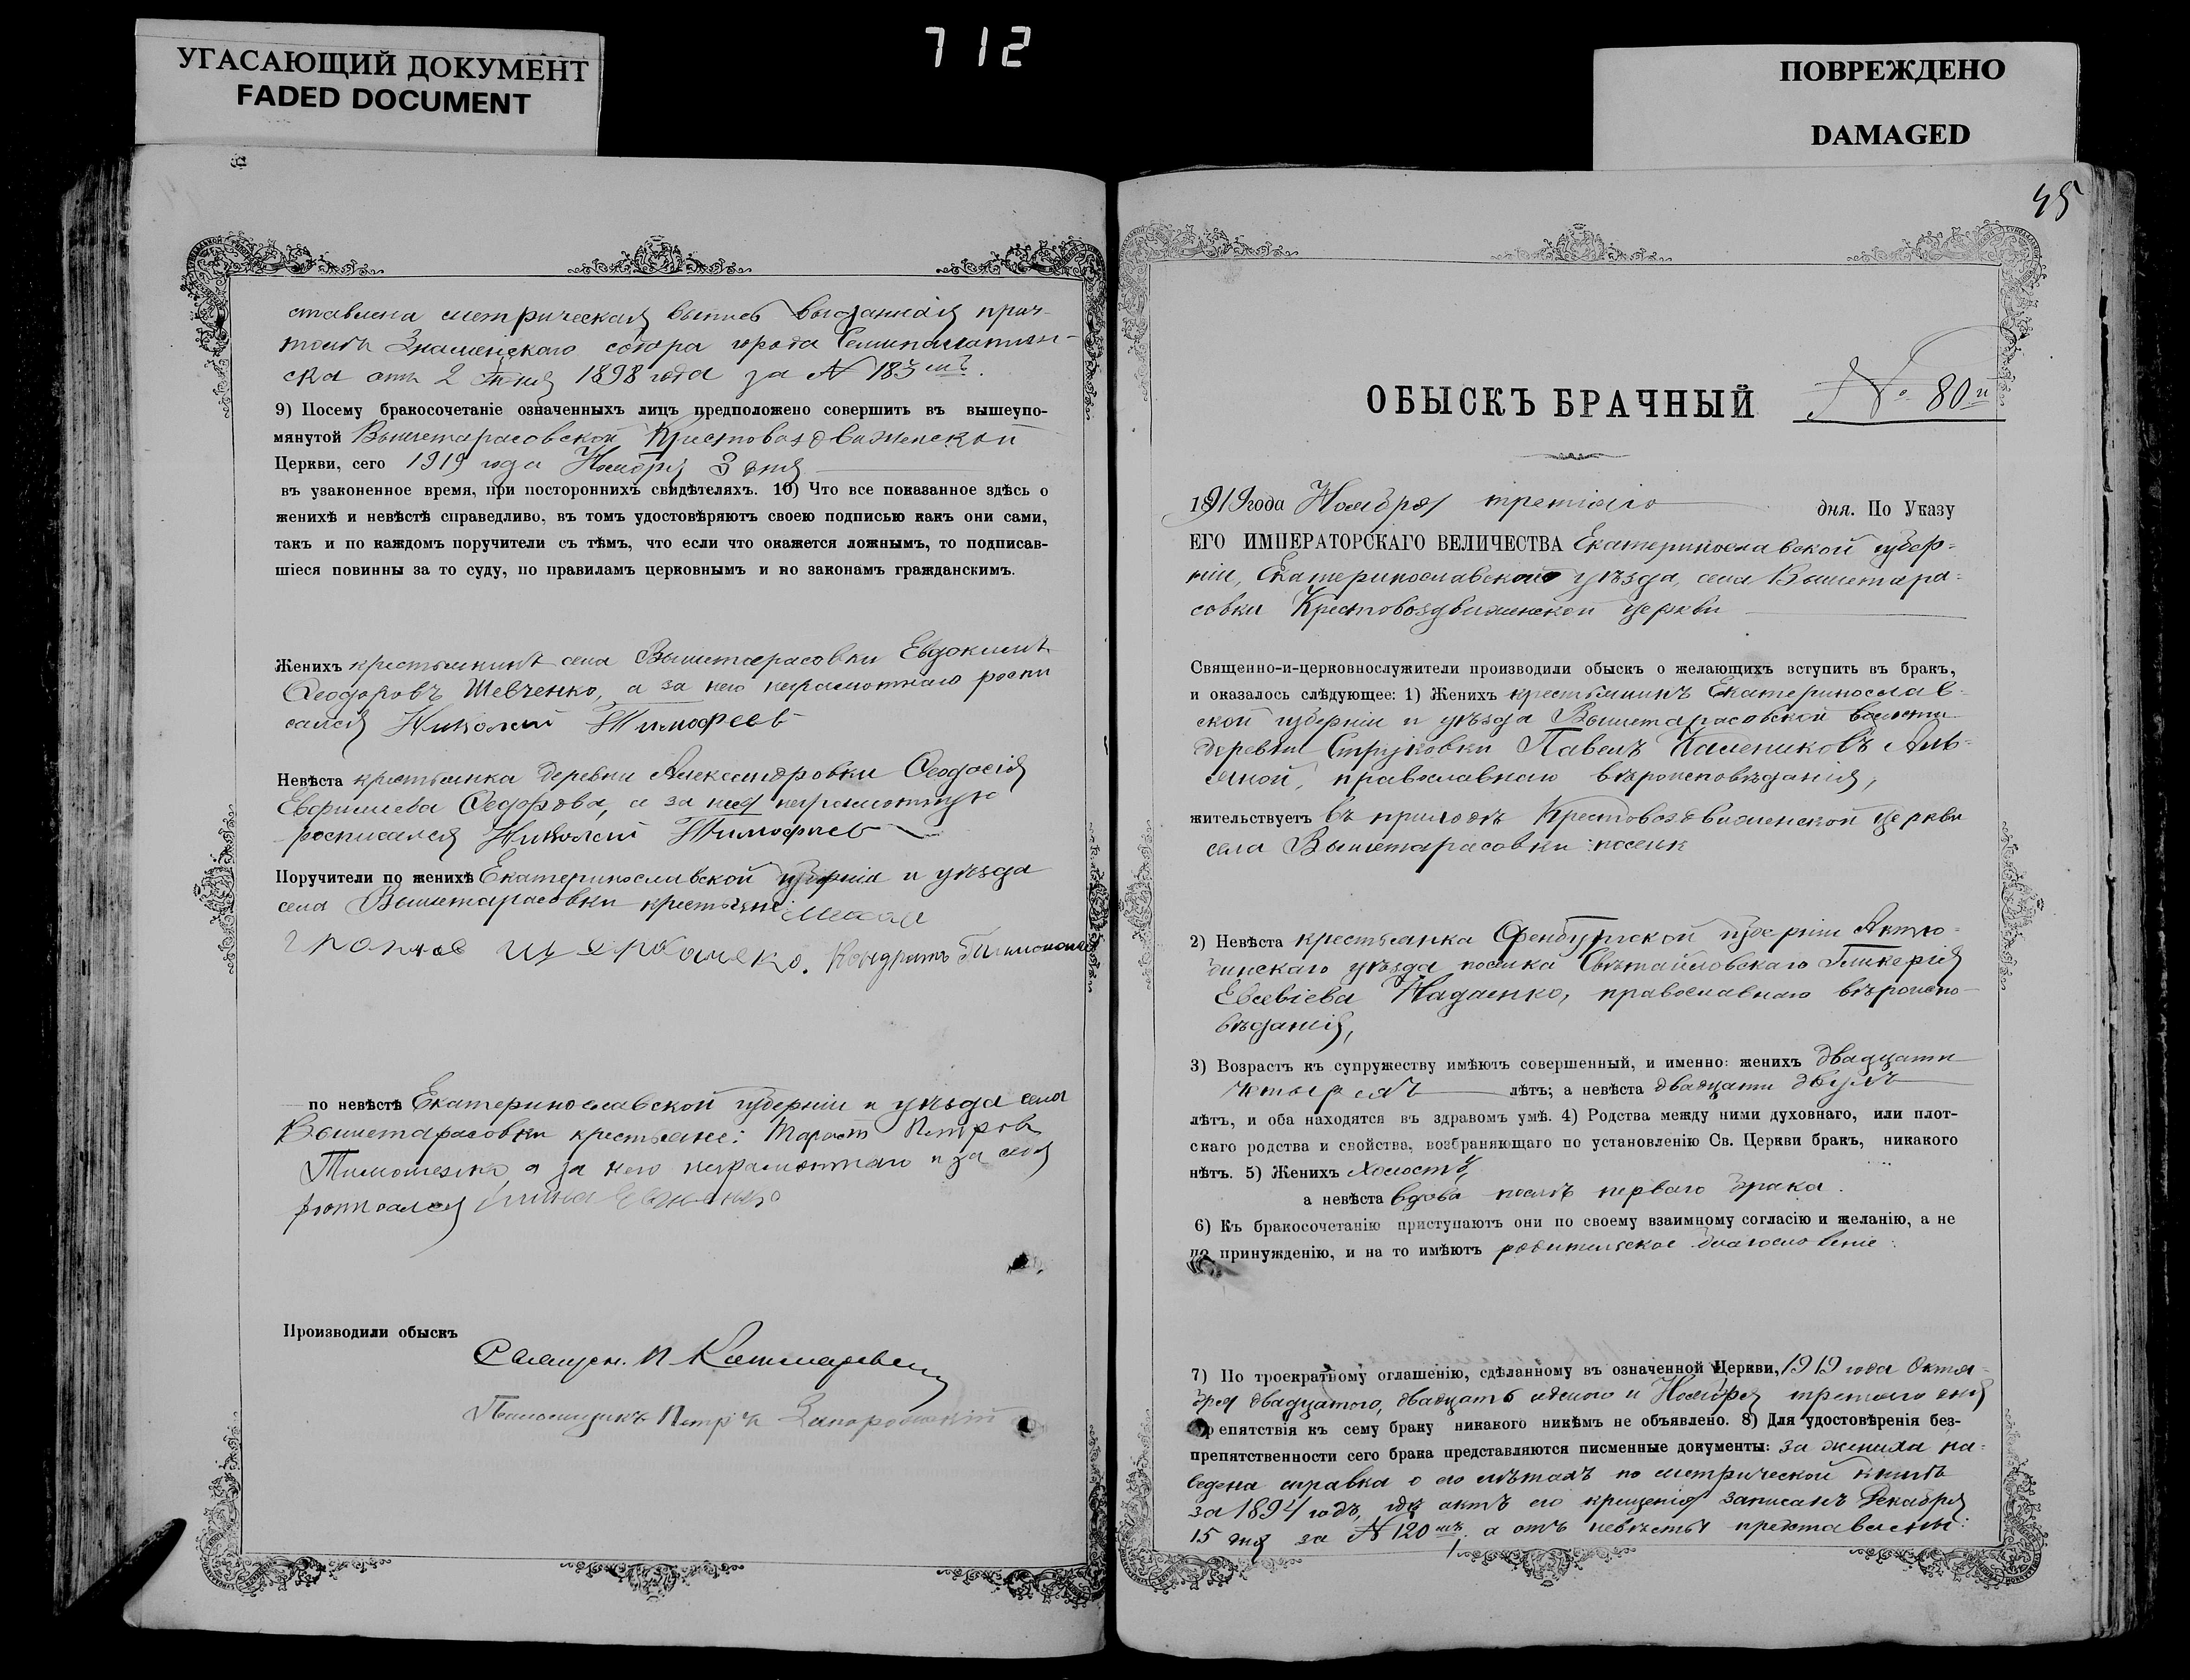 УГАСАЮЩИЙ ДОКУМЕНТ
FADED DOCUMENT
712
ПОВРЕЖДЕНО
DAMAGED
ставлена метрическая выпись выданная прич-
томъ Знаменскаго собора города Семипалатин-
ска отъ 2 Іюня 1898 года за № 183мъ.
9) Посему бракосочетаніе означенныхъ лицъ предположено совершить въ вышеупо-
мянутой Вышетарасовской Крестовоздвиженской
Церкви, сего 1919 года Ноября 3 дня
въ узаконенное время, при постороннихъ свидѣтеляхъ. 10) Что все показанное здѣсь о
женихѣ и невѣстѣ справедливо, въ томъ удостовѣряютъ своею подписью какъ они сами,
такъ и по каждомъ поручители съ тѣмъ, что если что окажется ложнымъ, то подписав-
шіеся повинны за то суду, по правиламъ церковнымъ и по законамъ гражданскимъ.
Женихъ крестьянинъ села Вышетарасовки Евдокимъ
Ѳеодоровъ Шевченко, а за него неграмотнаго роспи
сался Николай Тимофеев
Невѣста крестьянка деревни Александровки Ѳеодосія
Ефимиева Федорова, а за нея неграмотную
росписался Николай Тимофеев
Поручители по женихѣ Екатеринославской губерніи и уѣзда
села Вышетарасовки крестьяне:
Кондратъ
по невѣстѣ Екатеринославской губерніи и уѣзда села
Вышетарасовки крестьяне: Тарасъ Петровъ
Тимошенко, а за него неграмотнаго и за себя
росписался
Производили обыскъ
Священ. П.
Псаломщикъ Петръ Запорожскій
45
ОБЫСКЪ БРАЧНЫЙ № 80й
1919года Ноября третьяго дня. По Указу
ЕГО ИМПЕРАТОРСКАГО ВЕЛИЧЕСТВА Екатеринославской губер=
ніи, Екатеринославскаго уѣзда, села Вышетара=
совки Крестовоздвиженской церкви
Священно-и-церковнослужители производили обыскъ о желающихъ вступить въ бракъ,
и оказалось слѣдующее: 1) Женихъ крестьянинъ Екатеринослав-
ской губерніи и уѣзда Вышетарасовской волости
деревни Струковки Павелъ Калениковъ
православнаго вѣроисповѣданія,
жительствуетъ въ приходѣ Крестовоздвиженской церкви
села Вышетарасовки
2) Невѣста крестьянка Оренбургской губерніи Актю=
бинскаго уѣзда поселка Гликерія
Евсевіева Надаенко, православнаго вѣроиспо-
вѣданія,
3) Возрастъ къ супружеству имѣютъ совершенный, и именно: женихъ двадцати
четырехъ лѣтъ; а невѣста двадцати двухъ
лѣтъ, и оба находятся въ здравомъ умѣ. 4) Родства между ними духовнаго, или плот-
скаго родства и свойства, возбраняющаго по установленію Св. Церкви бракъ, никакого
нѣтъ. 5) Женихъ холостъ,
а невѣста вдова послѣ перваго брака.
6) Къ бракосочетанію приступаютъ они по своему взаимному согласію и желанію, а не
по принужденію, и на то имѣютъ родительское благословеніе.
7) По троекратному оглашенію, сдѣланному въ означенной Церкви, 1919 года Октя-
бря двадцатого, двадцать седьмого и Ноября третьяго дня
препятствія къ сему браку никакого никѣмъ не объявлено. 8) Для удостовѣренія без-
препятственности сего брака представляются писменные документы: за жениха на=
ведена справка о его лѣтахъ по метрической книгѣ
за 1894 годъ, гдѣ актъ его крещенія записанъ Декабря
15 дня за № 120мъ, а отъ невѣсты представлены: